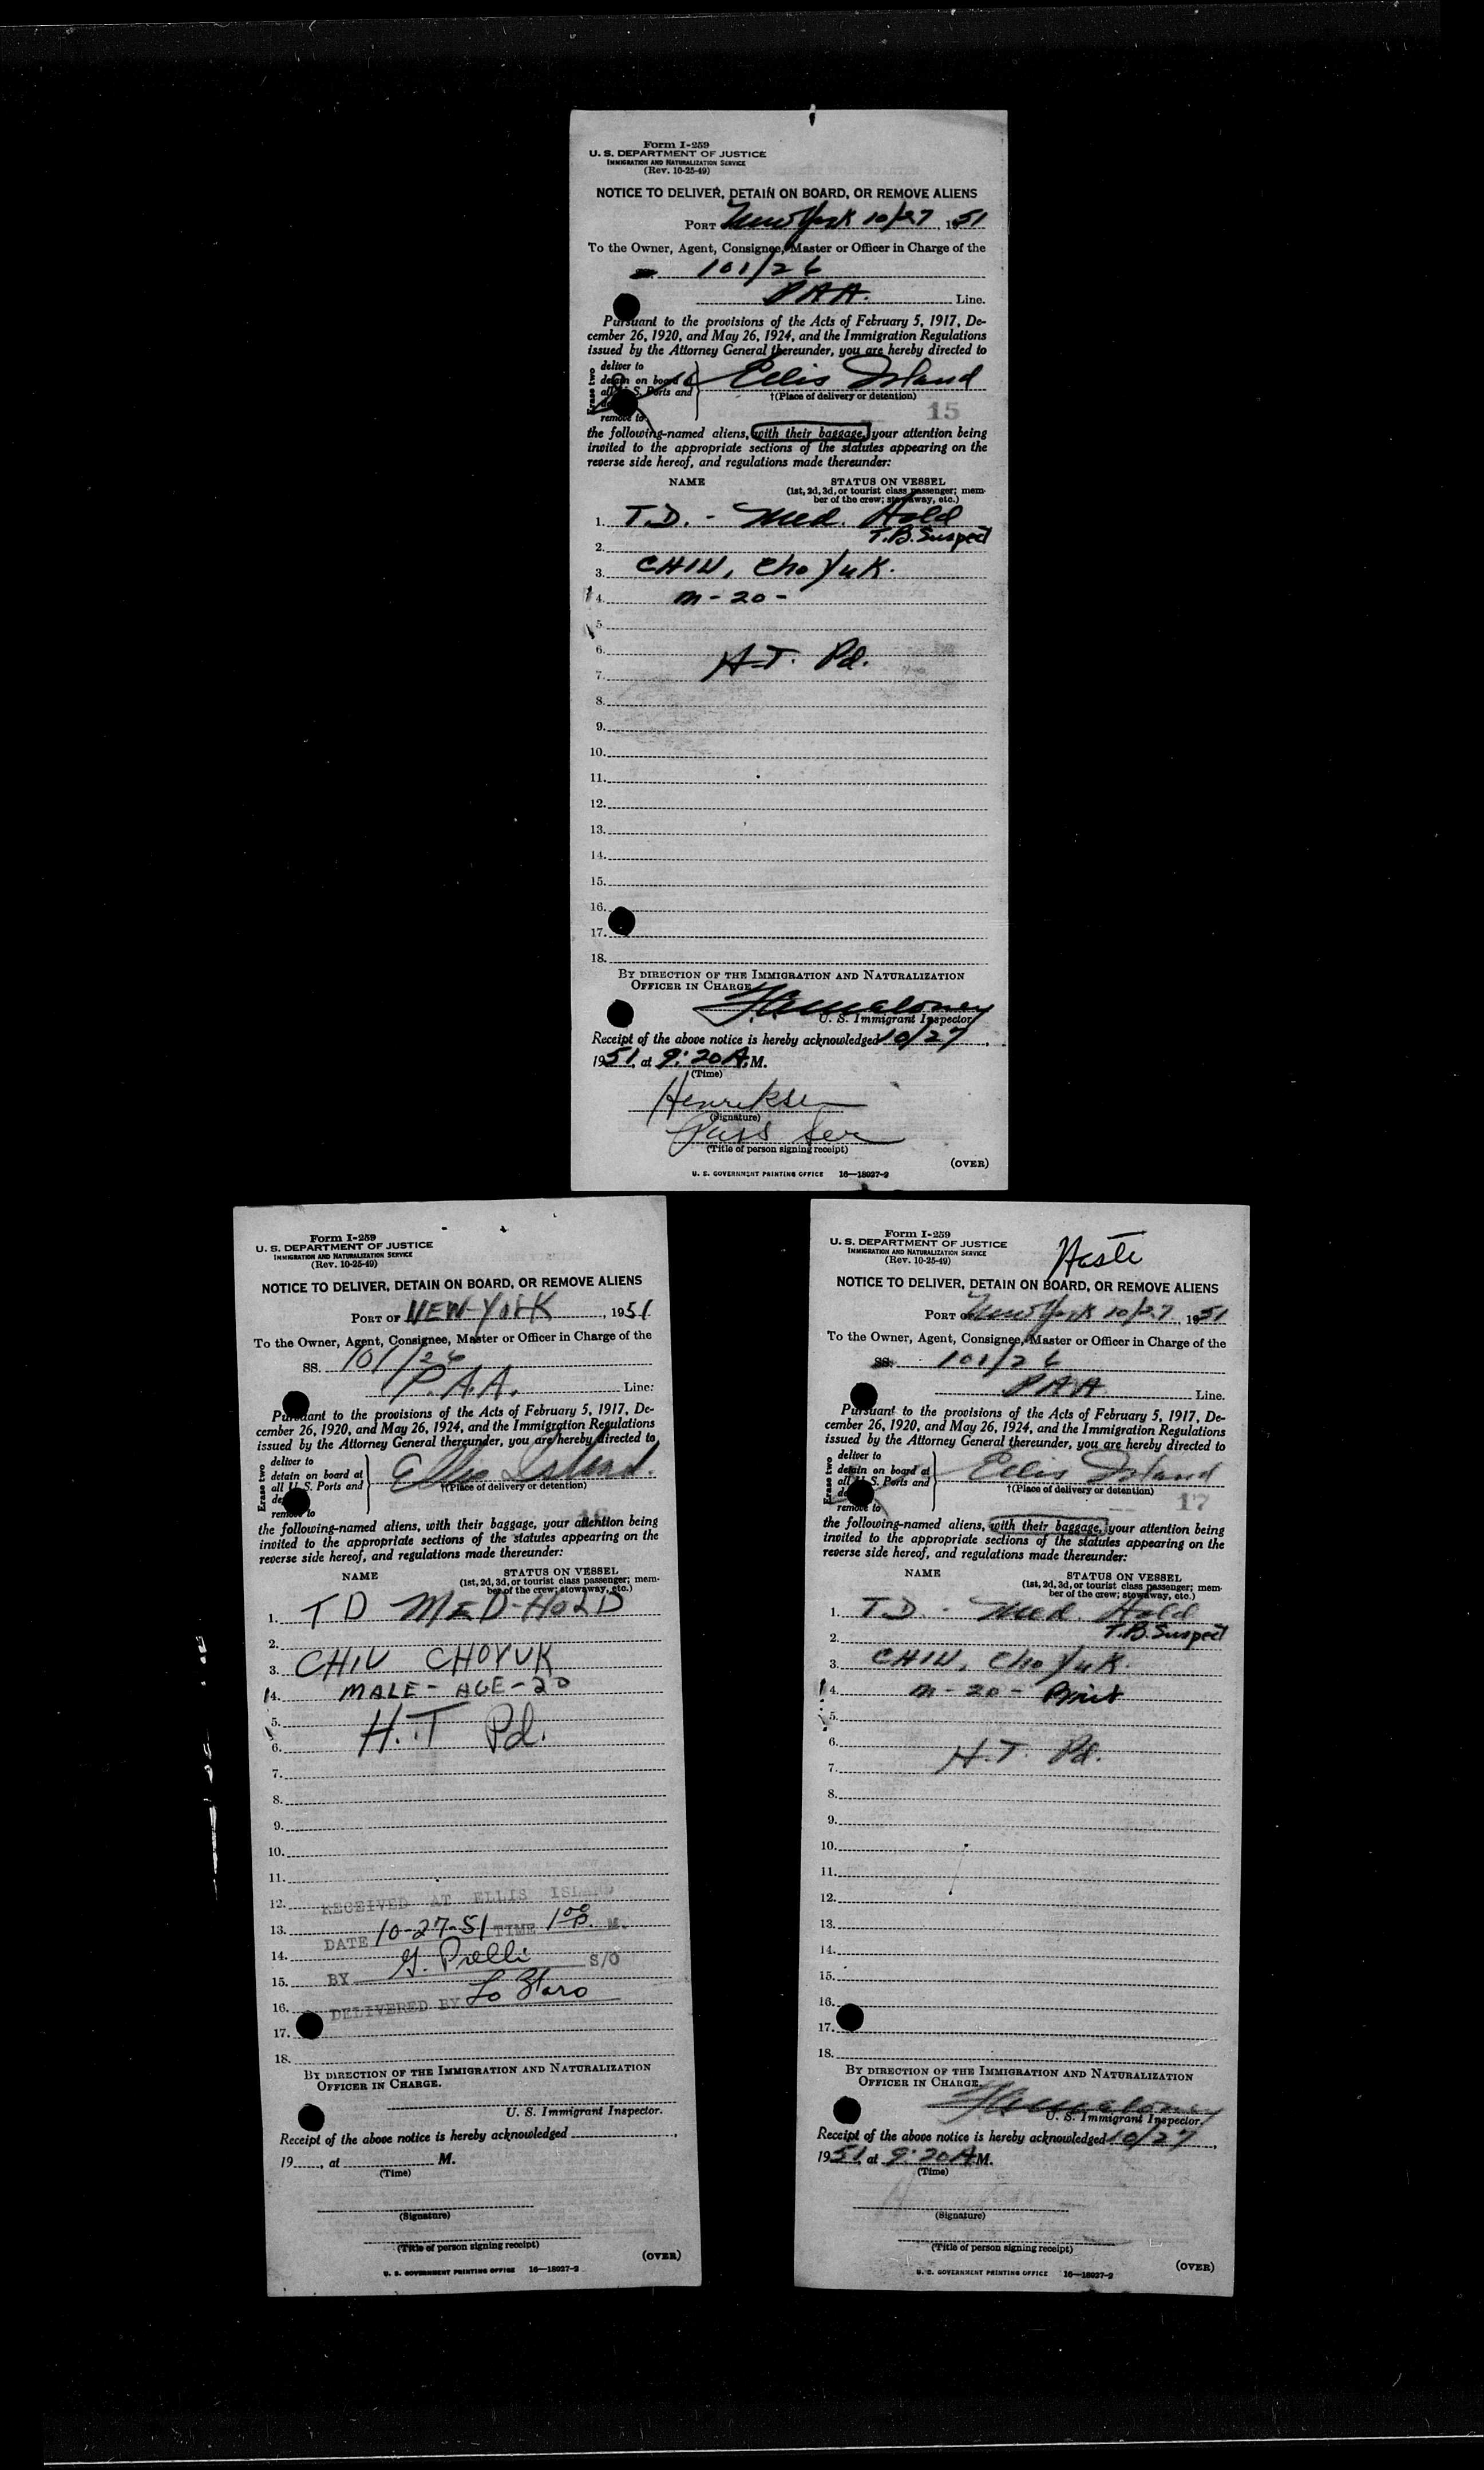 Form I-259
U. S. DEPARTMENT OF JUSTICE
IMMIGRATION AND NATURALIZATION SERVICE
(Rev. 10-25-49)
NOTICE TO DELIVER, DETAIN ON BOARD, OR REMOVE ALIENS
PORT New York 10/27, 1951
To the Owner, Agent, Consignee, Master or Officer in Charge of the
101/26
PAA. Line.
Pursuant to the provisions of the Acts of February 5, 1917, De-
cember 26, 1920, and May 26, 1924, and the Immigration Regulations
issued by the Attorney General thereunder, you are hereby directed to
Erase two
deliver to
detain on board
all U. S. Ports and
remove to
Ellis Island
†(Place of delivery or detention)
15
the following-named aliens, with their baggage, your attention being
invited to the appropriate sections of the statutes appearing on the
reverse side hereof, and regulations made thereunder:
NAME STATUS ON VESSEL
(1st, 2d, 3d, or tourist class passenger; mem-
ber of the crew; stowaway, etc.)
1. T.D. - Med. Hold
T.B. Suspect
2.
3. CHIN, Cho Yuk.
4. m - 20 -
5.
6.
H.T. Pd.
7.
8.
9.
10.
11.
12.
13.
14.
15.
16.
17.
18.
BY DIRECTION OF THE IMMIGRATION AND NATURALIZATION
OFFICER IN CHARGE
U. S. Immigrant Inspector
Receipt of the above notice is hereby acknowledged 10/27,
1951, at 9:20 A.M.
(Time)
Henriksen
(Signature)
Pass Ser
(Title of person signing receipt)
(OVER)
U. S. GOVERNMENT PRINTING OFFICE 16—18027-2
Form I-259
U. S. DEPARTMENT OF JUSTICE
IMMIGRATION AND NATURALIZATION SERVICE
(Rev. 10-25-49)
NOTICE TO DELIVER, DETAIN ON BOARD, OR REMOVE ALIENS
PORT OF NEW-YORK, 1951
To the Owner, Agent, Consignee, Master or Officer in Charge of the
SS. 101/26
P.A.A. Line.
Pursuant to the provisions of the Acts of February 5, 1917, De-
cember 26, 1920, and May 26, 1924, and the Immigration Regulations
issued by the Attorney General thereunder, you are hereby directed to
Erase two
deliver to
detain on board at
all U. S. Ports and
remove to
Ellis Island.
†(Place of delivery or detention)
16
the following-named aliens, with their baggage, your attention being
invited to the appropriate sections of the statutes appearing on the
reverse side hereof, and regulations made thereunder:
NAME STATUS ON VESSEL
(1st, 2d, 3d, or tourist class passenger; mem-
ber of the crew; stowaway, etc.)
1. TD MED-HOLD
2.
3. CHIN CHOYUK
4. MALE - AGE - 20
5.
H.T Pd.
6.
7.
8.
9.
10.
11.
12. RECEIVED AT ELLIS ISLAND
13. DATE 10-27-51 TIME 1 00 P. M.
14.
15. BY S/O
16. DELIVERED BY
17.
18.
BY DIRECTION OF THE IMMIGRATION AND NATURALIZATION
OFFICER IN CHARGE.
U. S. Immigrant Inspector.
Receipt of the above notice is hereby acknowledged ,
19 , at M.
(Time)
(Signature)
(Title of person signing receipt)
(OVER)
U. S. GOVERNMENT PRINTING OFFICE 16—18027-2
Form I-259
U. S. DEPARTMENT OF JUSTICE
IMMIGRATION AND NATURALIZATION SERVICE
(Rev. 10-25-49)
NOTICE TO DELIVER, DETAIN ON BOARD, OR REMOVE ALIENS
PORT New York 10/27, 1951
To the Owner, Agent, Consignee, Master or Officer in Charge of the
SS. 101/26
PAA Line.
Pursuant to the provisions of the Acts of February 5, 1917, De-
cember 26, 1920, and May 26, 1924, and the Immigration Regulations
issued by the Attorney General thereunder, you are hereby directed to
Erase two
deliver to
detain on board at
all U. S. Ports and
remove to
Ellis Island
†(Place of delivery or detention)
17
the following-named aliens, with their baggage, your attention being
invited to the appropriate sections of the statutes appearing on the
reverse side hereof, and regulations made thereunder:
NAME STATUS ON VESSEL
(1st, 2d, 3d, or tourist class passenger; mem-
ber of the crew; stowaway, etc.)
1. T.D. - Med. Hold
T.B. Suspect
2.
3. CHIN, Cho Yuk.
4. m - 20 -
5.
6.
H.T. Pd.
7.
8.
9.
10.
11.
12.
13.
14.
15.
16.
17.
18.
BY DIRECTION OF THE IMMIGRATION AND NATURALIZATION
OFFICER IN CHARGE.
U. S. Immigrant Inspector.
Receipt of the above notice is hereby acknowledged 10/27,
1951, at 9:20 A.M.
(Time)
(Signature)
(Title of person signing receipt)
(OVER)
U. S. GOVERNMENT PRINTING OFFICE 16—18027-2